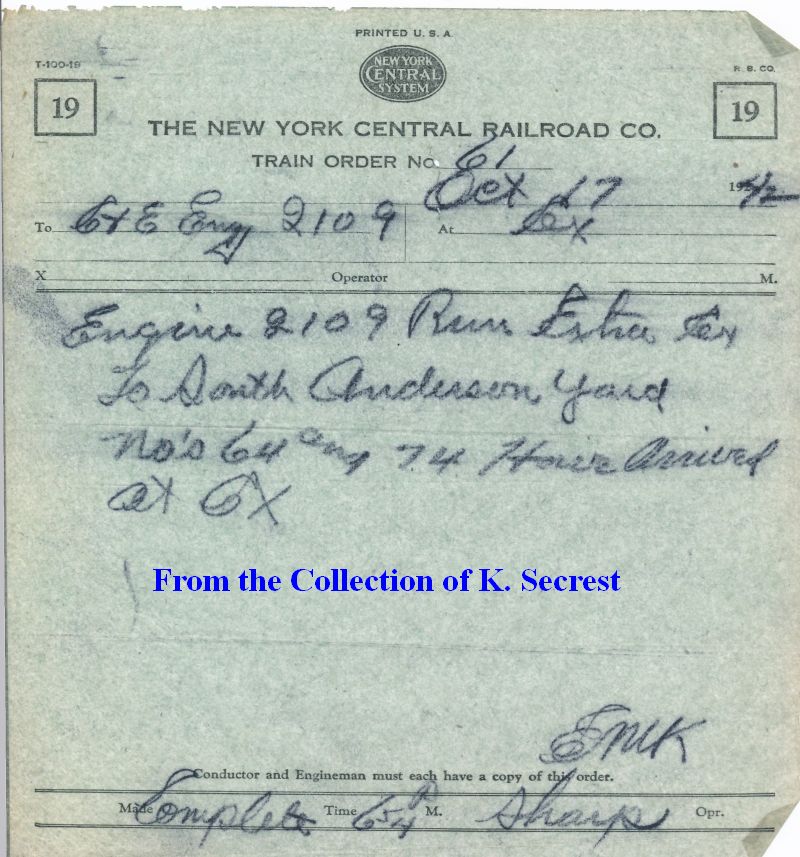 PRINTED U. S. A.
T-100-19
NEW YORK
CENTRAL
SYSTEM
R. B. CO.
19
19
THE NEW YORK CENTRAL RAILROAD CO.
TRAIN ORDER No. 61
Oct 17 1942
To C&E Eng 2109 At Gx
X Operator M.
Engine 2109 Run Extra Gx
To South Anderson Yard
No's 64 and 74 Have Arrived
at GX
From the Collection of K. Secrest
Conductor and Engineman must each have a copy of this order.
Made Complete Time P M. Sharp Opr.